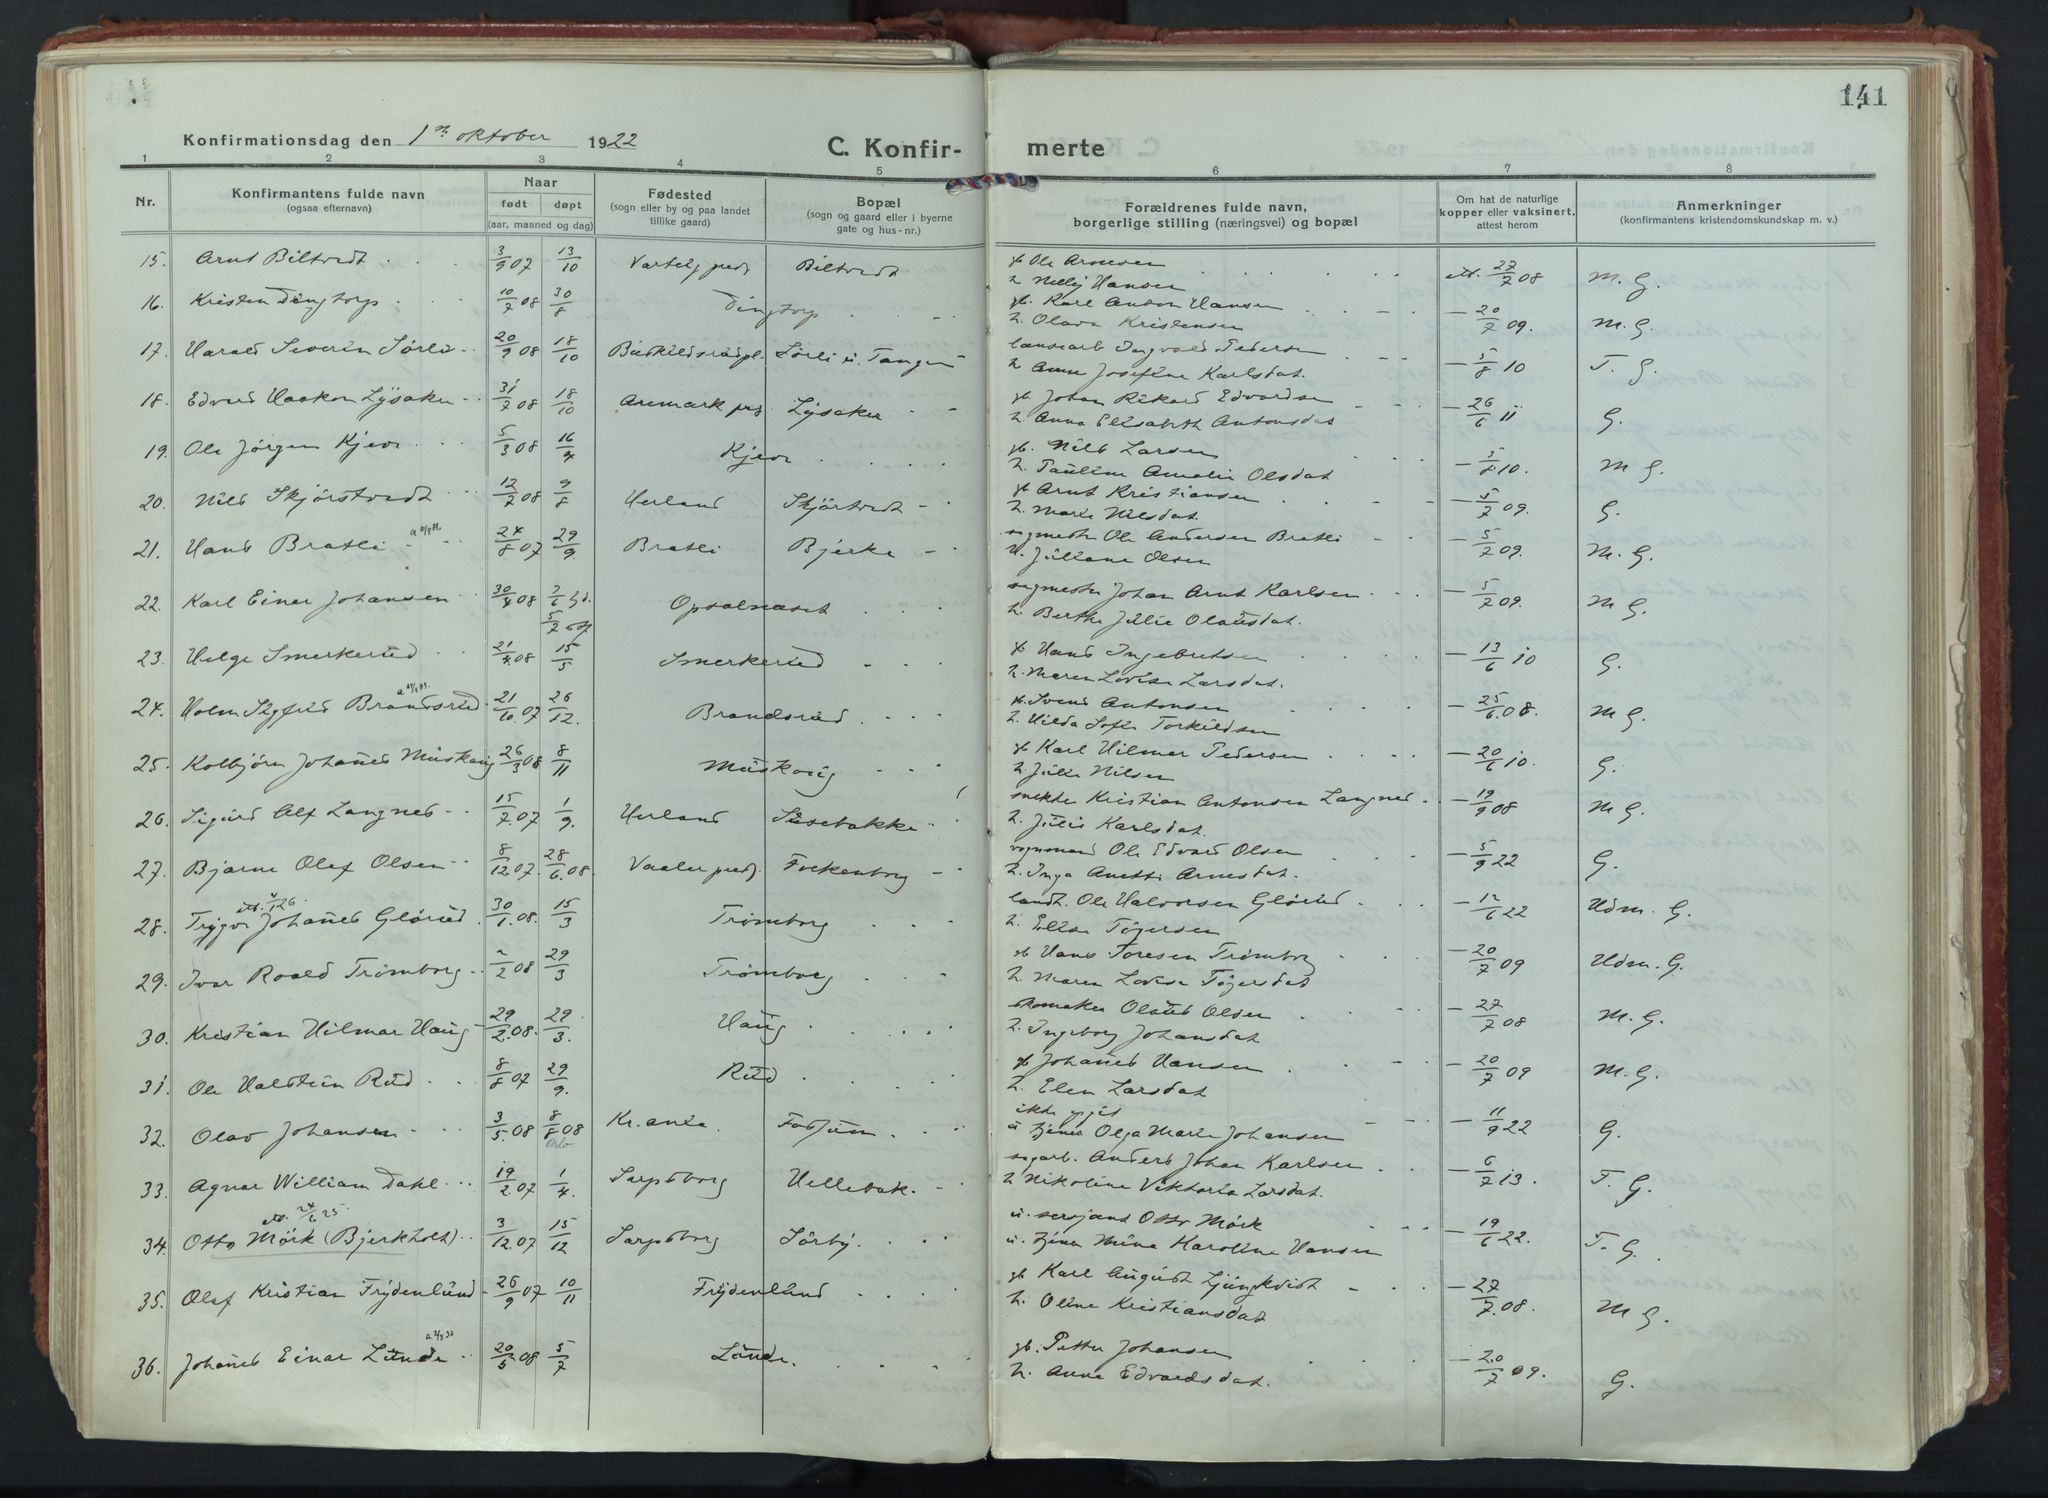 141
Konfirmationsdag den 1ste oktober 1922
C. Konfirmerte
1 2 3 4 5 6 7 8
Nr. Konfirmantens fulde navn (ogsaa efternavn) Naar født døpt (aar, maaned og dag) Fødested (sogn eller by og paa landet tillike gaard) Bopæl (sogn og gaard eller i byerne gate og hus-nr.) Forældrenes fulde navn, borgerlige stilling (næringsvei) og bopæl Om hat de naturlige kopper eller vaksinert, attest herom Anmerkninger (konfirmantens kristendomskundskap m. v.)
15. Arnt Biltvedt 3/9 07 13/10 Varteig Biltvedt Ole Arnesen att. 27/7 08 M. G.
h. Nelly Hansen
16. Kristen Dingtorp 10/7 08 30/8 Dingtorp gb. Karl Anton Hansen – 20/7 09. M. G.
h. Olava Kristensen
17. Harald Severin Sørli 20/9 08 18/10 Sørli u. Tangen Ingvald Pedersen – 5/8 10 T. G.
h. Anne Josefine Karlsdat.
18. Edvard Haakon Lysaker 31/7 08 18/10 Aremark Lysaker Johan Rikard Edvardsen – 26/6 11 G.
h. Anna Elisabeth Antonsdat
19. Ole Jørgen Kjeve 5/3 08 16/4 Kjeve gb. Nils Larsen – 5/8 10. M G.
h. Pauline Amalie Olsdat
20. Nils Skjørstvedt 12/7 08 9/8 Herland Skjørtvedt Arnt Kristiansen – 5/7 09. G.
h. Marie Nilsdat.
21. Hans Bratli 24/8 07 29/9 Bratli Bjerke sagmester Ole Andersen Bratli – 5/7 09. M. G.
h. Juliane Olsen
22. Karl Einar Johansen 30/4 08 7/6 hd. 5/7 Opsalnæset sagmester Johan Arnt Karlsen – 5/7 09. M G.
h. Berthe Julie Olausdat.
23. Helge Smerkerud 21/4 08 15/5 Smerkerud Hans Ingebretsen – 13/6 10 G.
h. Maren Lovise Larsdat.
24. Holm Sigfred Brandsrud 21/10 07 26/12. Brandsrud Svend Antonsen – 25/6. 08. M G.
h. Hilda Sofie Torkildsen
25. Kolbjørn Johanes Muskaug 26/3 08 8/11 Muskaug Karl Hilmar Pedersen – 20/6 10. G.
h. Julie Nilsen
26. Sigurd Alf Langnes 15/7. 07 1/9. Herland Susebakke Kristian Antonsen Langnes – 19/9 08 M G.
h. Julie Karlsdat.
27. Bjarne Olaf Olsen 8/12. 07. 28/6. 08. Vaaler Fokkenborg vognmand Ole Edvard Olsen – 5/9 22 G.
h. Inga Anette Arnesdat.
28. Trygve Johanes Glørud 30/1. 08. 15/3 Trømborg landh. Ole Halvorsen Glørud – 12/6 22 Udm. G.
h. Elise Tøgersen
29. Ivar Roald Trømborg 2/2 08 29/3 Trømborg gb Hans Toresen Trømborg – 20/7 09 Udm. G.
h. Maren Lovise Tøgersdat
30. Kristian Hilmar Haug 29/2. 08. 29/3. Haug skomaker Olaus Olsen – 27/7 08 M. G.
h. Ingeborg Johansdat
31. Ole Halstein Rud 8/8 07 29/9. Rud gb Johanes Hansen – 20/7 09 M. G.
h. Elen Larsdat
32. Olav Johansen 3/5 08 8/8 08 Oslo Kr.ania. Fosjum ikke opgit – 11/9 22 G.
u tjener Olga Marie Johansen
33. Agnar William Dahl 19/2. 07 1/4. Sarpsborg Hellebæk. sagarb. Anders Johan Karlsen – 6/7 13. T. G.
h Nikoline Viktoria Larsdat.
34. Otto Mörk (Bjerkholt) att. 24/6 25. 3/12. 07 15/12 Sarpsborg Sörby. u. sersjant Otto Mörk – 19/6 22. T. G.
u. tjener Mina Karoline Hansen
35. Olaf Kristian Frydenlund 26/9 07 10/11 Frydenlund gb Karl August Ljungkvist – 27/7. 08. M G.
h. Oline Kristiansdat
36. Johanes Einar Lunde 20/5 08 5/7 Lunde. gb. Petter Johansen – 20/7 09. G.
h. Anne Edvardsdat.